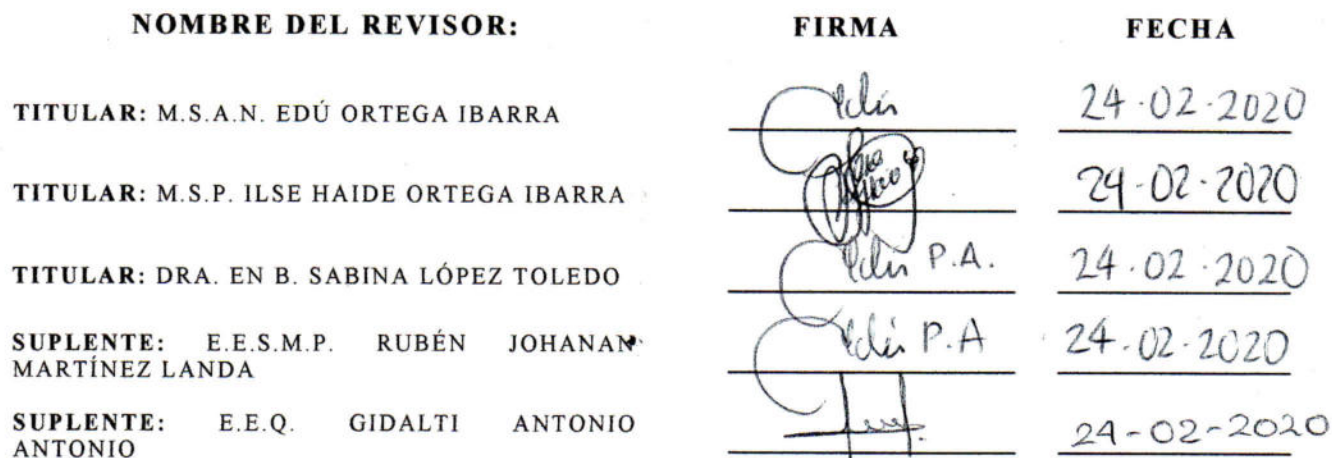 NOMBRE DEL REVISOR: FIRMA FECHA
TITULAR: M.S.A.N. EDÚ ORTEGA IBARRA Edú 24-02-2020
TITULAR: M.S.P. ILSE HAIDE ORTEGA IBARRA 24-02-2020
TITULAR: DRA. EN B. SABINA LÓPEZ TOLEDO Edú P.A. 24-02-2020
SUPLENTE: E.E.S.M.P. RUBÉN JOHANAN Edú P.A 24-02-2020
MARTÍNEZ LANDA
SUPLENTE: E.E.Q. GIDALTI ANTONIO 24-02-2020
ANTONIO